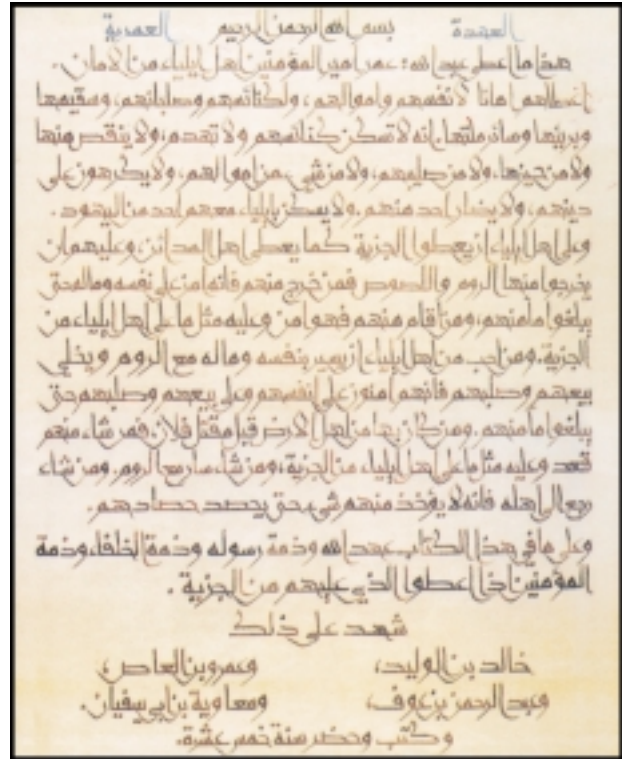 العهدة بسم الله الرحمن الرحيم العمرية
هذا ما اعطى عبد الله : عمر امير المؤمنين اهل إيلياء من الامان .
اعطاهم امانا لانفسهم واموالهم ، ولكنائسهم وصلبانهم ، وسقيمها
وبريئها وسائر ملتها . انه لا تسكن كنائسهم ولا تهدم ، ولا ينقص منها
ولا من حيزها ، ولا من صليبهم ، ولا من شيء من اموالهم ، ولا يكرهون على
دينهم ، ولا يضار احد منهم . ولا يسكن بإيلياء معهم احد من اليهود .
وعلى اهل إيلياء ان يعطوا الجزية كما يعطي اهل المدائن وعليهم ان
يخرجوا منها الروم واللصوص فمن خرج منهم فانه امن على نفسه وماله حتى
يبلغوا مأمنهم ، ومن اقام منهم فهو امن وعليه مثل ما على اهل إيلياء من
الجزية . ومن احب من اهل إيلياء ان يسير بنفسه وماله مع الروم ويخلي
بيعهم وصلبهم فانهم امنون على انفسهم وعلى بيعهم وصلبهم حتى
يبلغوا مأمنهم . ومن كان بها من اهل الارض قبل مقتل فلان . فمن شاء منهم
قعد وعليه مثل ما على اهل إيلياء من الجزية ، ومن شاء سار مع الروم . ومن شاء
رجع الى اهله فانه لا يؤخذ منهم شيء حتى يحصد حصادهم .
وعلى ما في هذا الكتاب عهد الله وذمة رسوله وذمة الخلفاء وذمة
المؤمنين اذا اعطوا الذي عليهم من الجزية .
شهد على ذلك
خالد بن الوليد ، وعمرو بن العاص ،
وعبد الرحمن بن عوف ، ومعاوية بن ابي سفيان .
وكتب وحضر سنة خمس عشرة .